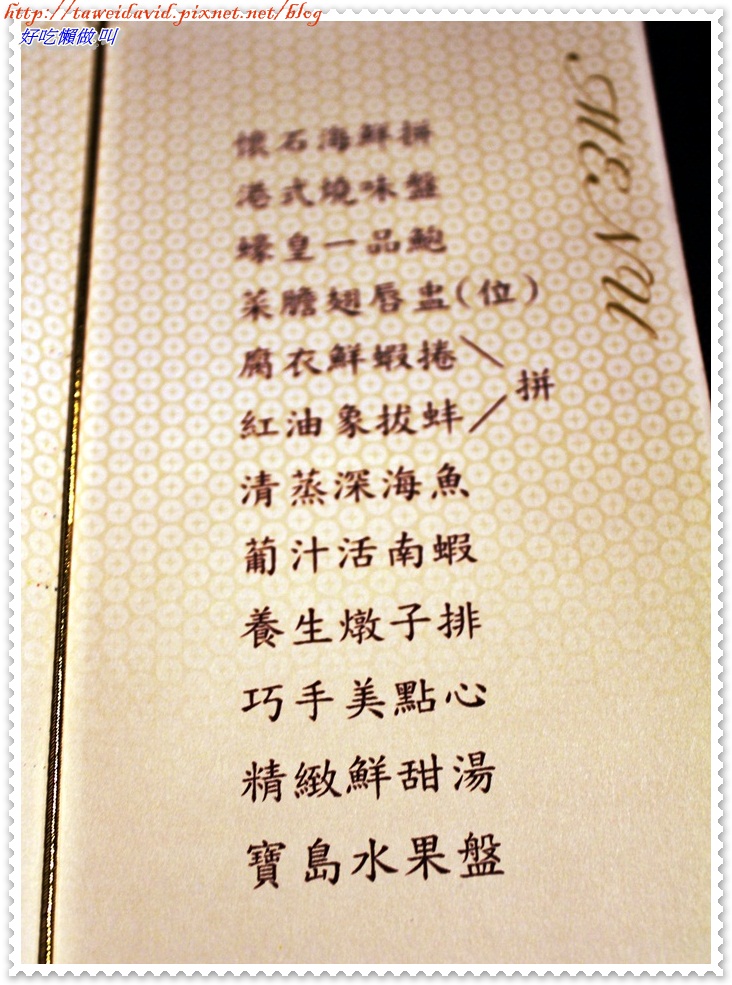 http://taweidavid.pixnet.net/blog
好吃懶做.叫
MENU
懷石海鮮拼
港式燒味盤
蠔皇一品鮑
菜膽翅唇盅(位)
腐衣鮮蝦捲
拼
紅油象拔蚌
清蒸深海魚
葡汁活南蝦
養生燉子排
巧手美點心
精緻鮮甜湯
寶島水果盤